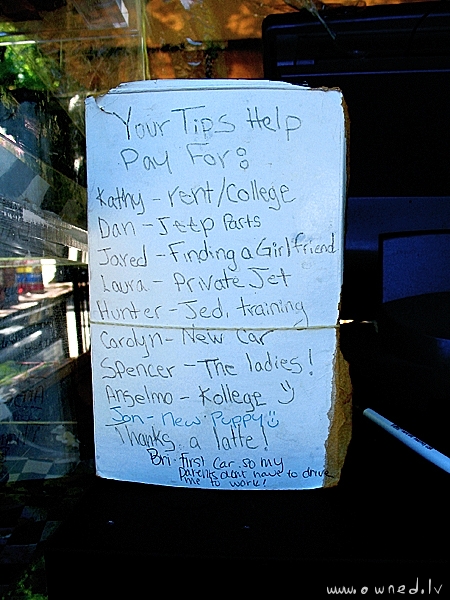 Your Tips Help
Pay For:
Kathy - rent/College
Dan - Jeep Parts
Jared - Finding a Girlfriend
Laura - Private Jet
Hunter - Jedi training
Carolyn - New Car
Spencer - The ladies!
Anselmo - Kollege
Jon - New Puppy
Thanks a latte!
Bri - First Car so my
parents dont have to drive
me to work!
www.owned.lv